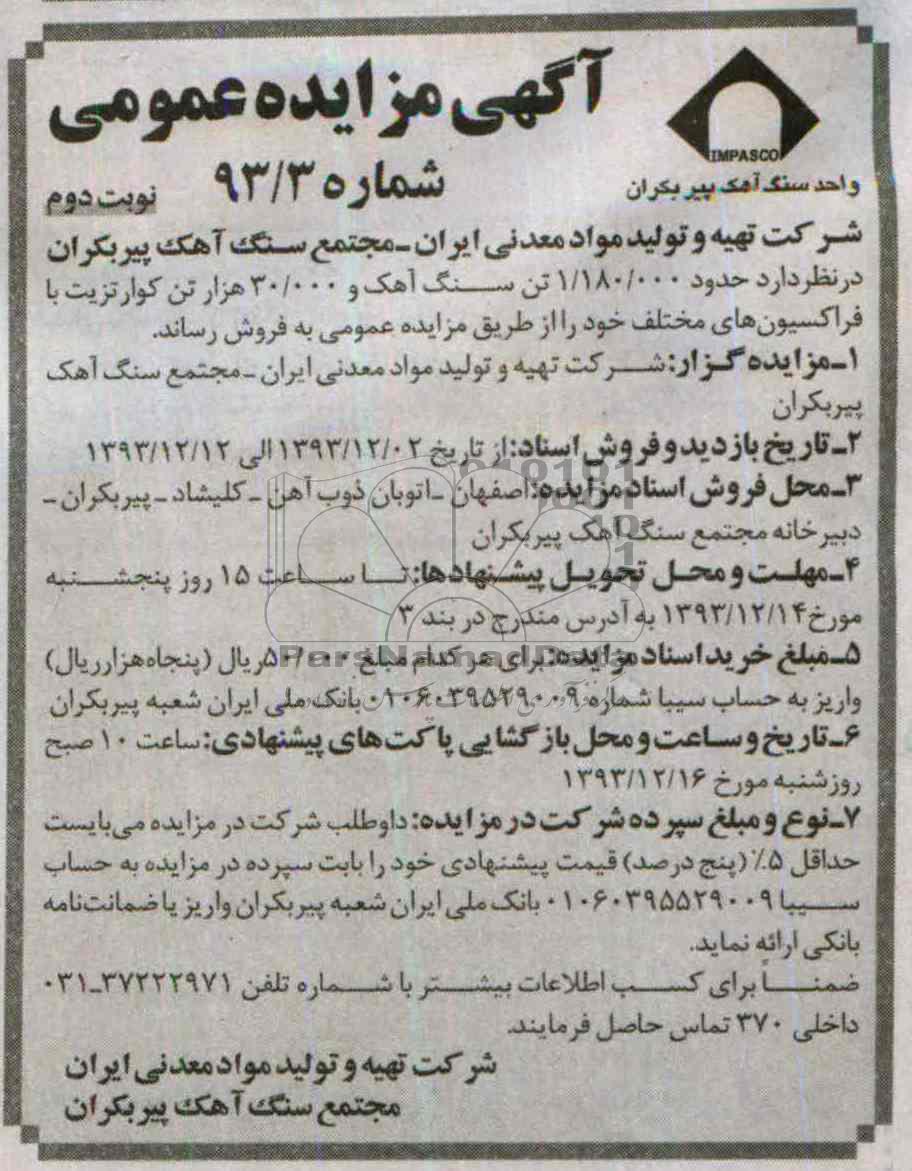 آگهی مزایده عمومی
IMPASCO
واحد سنگ آهک پیربکران
شماره ۹۳/۳
نوبت دوم
شرکت تهیه و تولید مواد معدنی ایران - مجتمع سنگ آهک پیربکران
درنظر دارد حدود ۱/۱۸۰/۰۰۰ تن سنگ آهک و ۳۰/۰۰۰ هزار تن کوارتزیت با
فراکسیون‌های مختلف خود را از طریق مزایده عمومی به فروش رساند.
۱- مزایده گزار: شرکت تهیه و تولید مواد معدنی ایران - مجتمع سنگ آهک
پیربکران
۲- تاریخ بازدید و فروش اسناد: از تاریخ ۱۳۹۳/۱۲/۰۲ الی ۱۳۹۳/۱۲/۱۲
۳- محل فروش اسناد مزایده: اصفهان - اتوبان ذوب آهن - کلیشاد - پیربکران -
دبیرخانه مجتمع سنگ آهک پیربکران
۴- مهلت و محل تحویل پیشنهادها: تا ساعت ۱۵ روز پنجشنبه
مورخ ۱۳۹۳/۱۲/۱۴ به آدرس مندرج در بند ۳
ParsNamadData
۵- مبلغ خرید اسناد مزایده: برای هر کدام مبلغ ۵۰/۰۰۰ ریال (پنجاه هزار ریال)
واریز به حساب سیبا شماره ۰۱۰۶۰۳۹۵۲۹۰۰۹ بانک ملی ایران شعبه پیربکران
۶- تاریخ و ساعت و محل بازگشایی پاکت‌های پیشنهادی: ساعت ۱۰ صبح
روز شنبه مورخ ۱۳۹۳/۱۲/۱۶
۷- نوع و مبلغ سپرده شرکت در مزایده: داوطلب شرکت در مزایده می‌بایست
حداقل ۵٪ (پنج درصد) قیمت پیشنهادی خود را بابت سپرده در مزایده به حساب
سیبا ۰۱۰۶۰۳۹۵۵۲۹۰۰۹ بانک ملی ایران شعبه پیربکران واریز یا ضمانت‌نامه
بانکی ارائه نماید.
ضمناً برای کسب اطلاعات بیشتر با شماره تلفن ۳۷۲۲۲۹۷۱-۰۳۱
داخلی ۳۷۰ تماس حاصل فرمایند.
شرکت تهیه و تولید مواد معدنی ایران
مجتمع سنگ آهک پیربکران